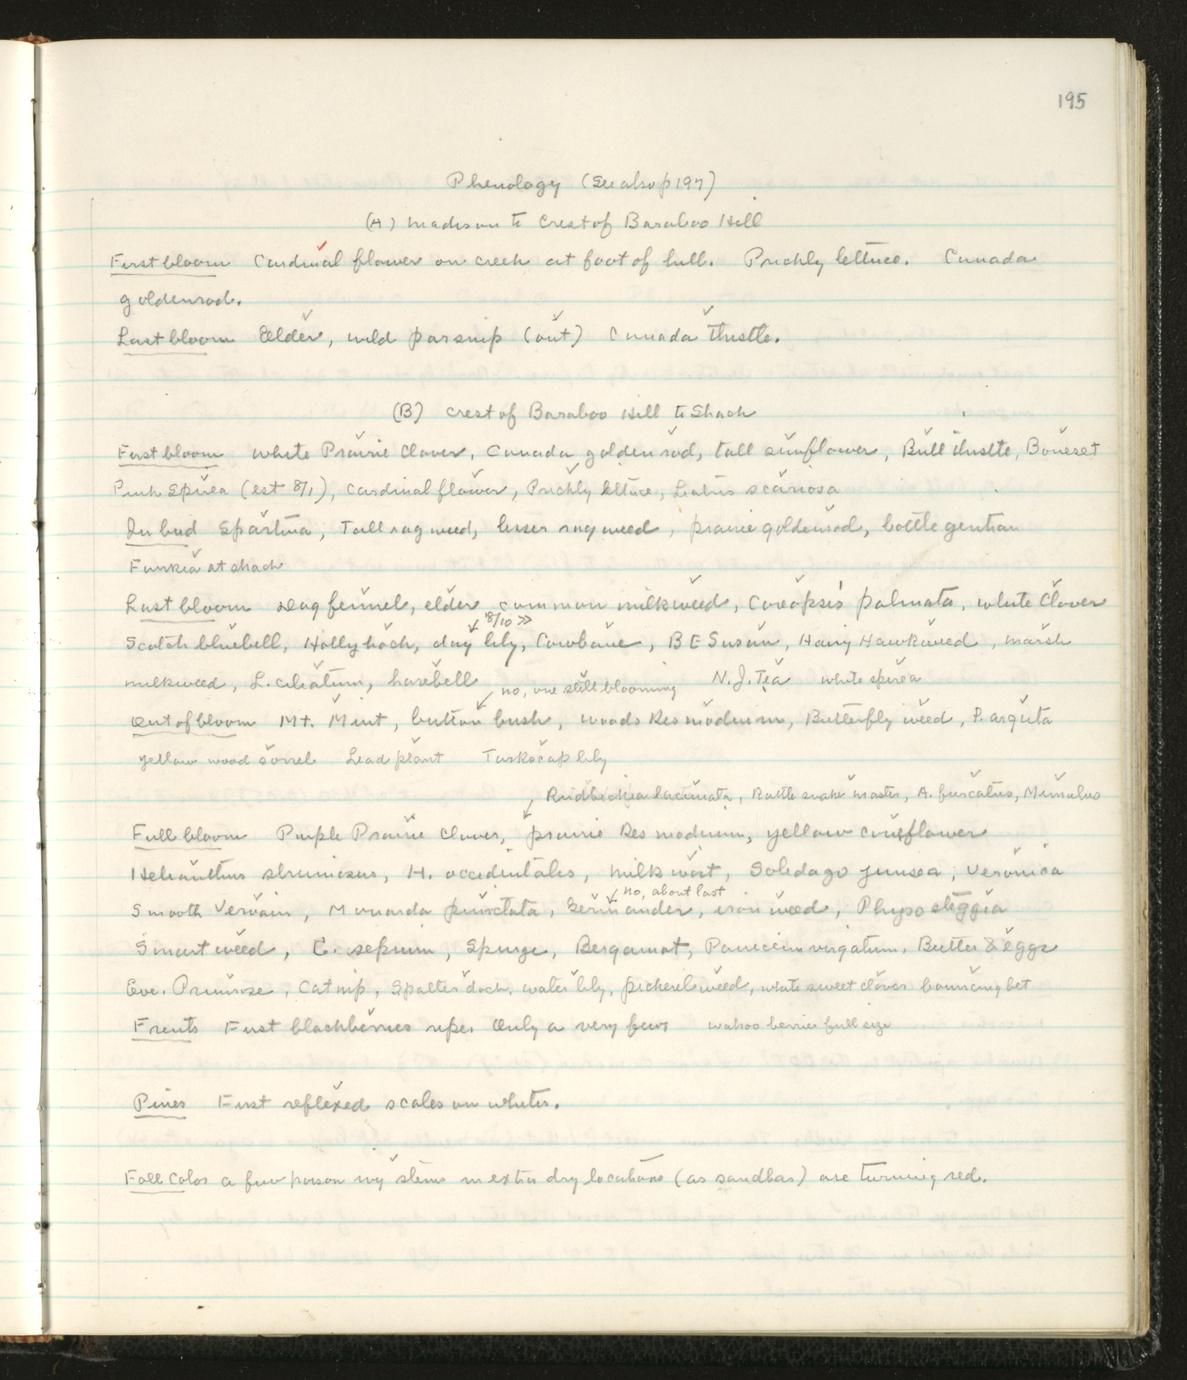 195
Phenology (See also p 197)
(A) Madison to Crest of Baraboo Hill
First bloom Cardinal flower on creek at foot of hill. Prickly lettuce. Canada
goldenrod.
Last bloom Elder, wild parsnip (out) Canada thistle.
(B) Crest of Baraboo Hill to Shack
First bloom White Prairie Clover, Canada goldenrod, tall sunflower, Bull thistle, Boneset
Pink Spirea (est 8/1), Cardinal flower, Prickly lettuce, Liatris scariosa
In bud Spartina, Tall ragweed, lesser ragweed, prairie goldenrod, bottle gentian
Funkia at shack
Last bloom Dog fennel, elder, common milkweed, Coreopsis palmata, white Clover
8/10 >>
Scotch bluebell, Hollyhock, day lily, Cowbane, B E Susan, Hairy Hawkweed, marsh
milkweed, L. ciliatum, harebell N.J. Tea white spirea
no, one still blooming
Out of bloom Mt. Mint, button bush, woods Desmodium, Butterfly weed, P. arguta
yellow wood sorrel Lead plant Turkscap lily
Rudbeckia laciniata, Rattlesnake master, A. furcatus, Mimulus
Full bloom Purple Prairie Clover, prairie Desmodium, yellow coneflower
Helianthus strumosus, H. occidentales, milkwort, Solidago juncea, Veronica
no, about last
Smooth Vervain, Monarda punctata, Germander, iron weed, Physosteggia
Smartweed, C. sepium, Spurge, Bergamot, Panicum virgatum, Butter & eggs
Eve. Primrose, Catnip, Spatterdock, water lily, pickerelweed, white sweet clover bouncing bet
Fruits First blackberries ripe. Only a very few wahoo berries full size
Pines First reflexed scales on whites.
Fall Color a few poison ivy stems in extra dry locations (as sandbar) are turning red.